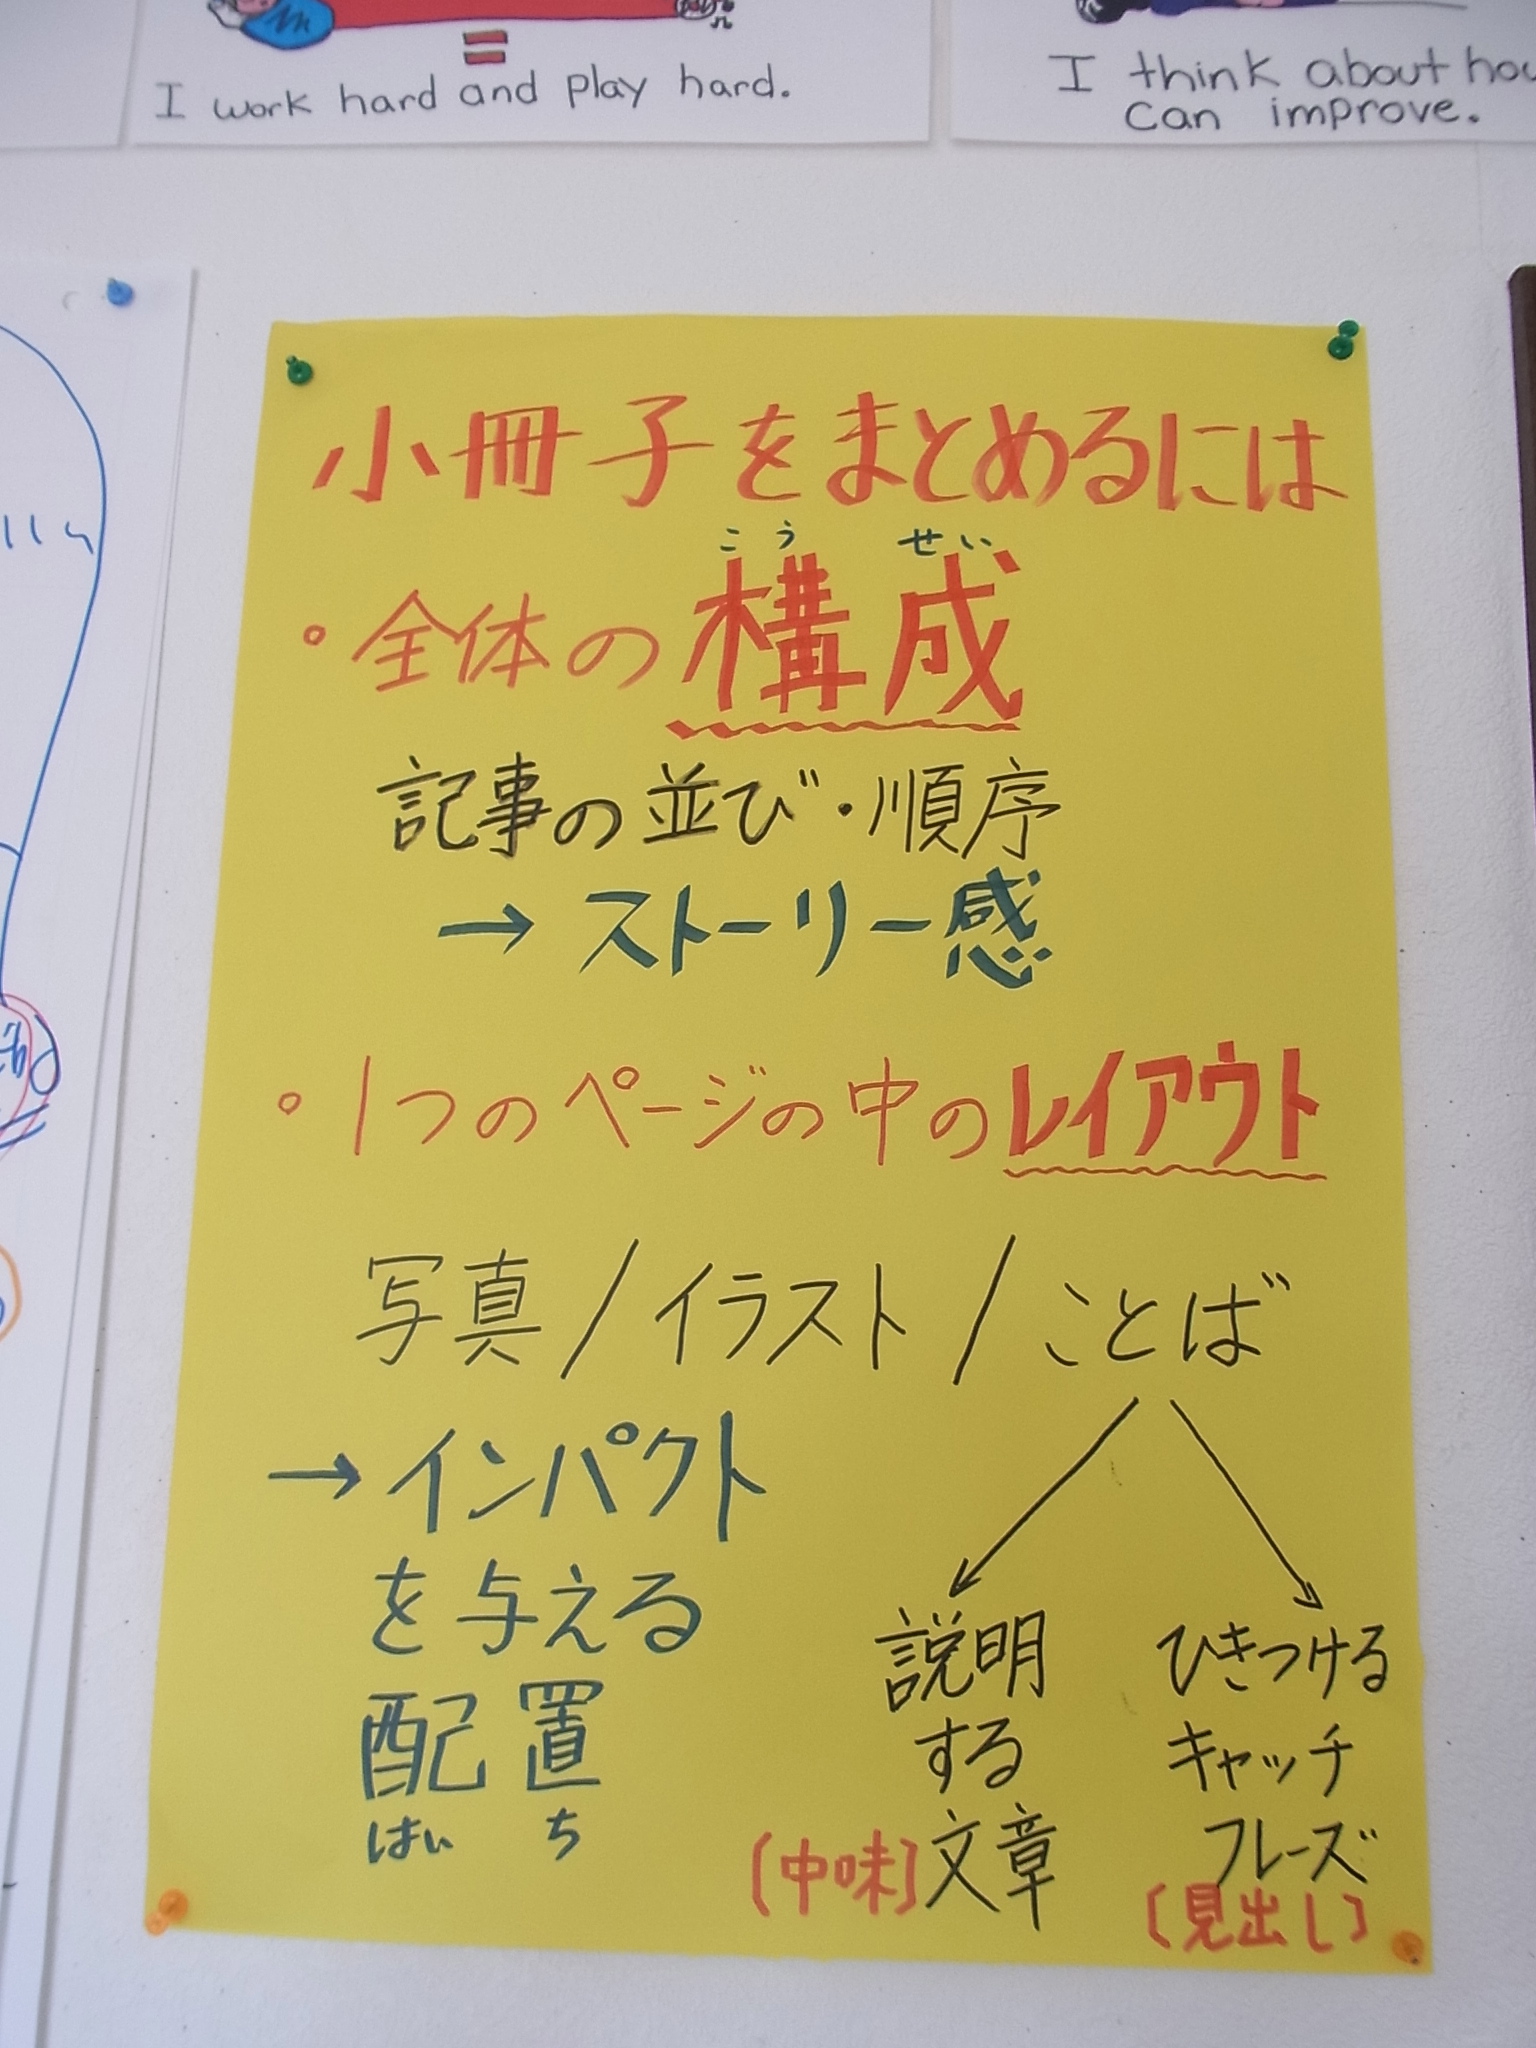 I work hard and play hard.
I think about
can improve.
小冊子をまとめるには
こうせい
・全体の構成
記事の並び・順序
→ストーリー感
・1つのページの中のレイアウト
写真/イラスト/ことば
→インパクト
を与える
配置
はいち
説明
する
文章
[中味]
ひきつける
キャッチ
フレーズ
[見出し]